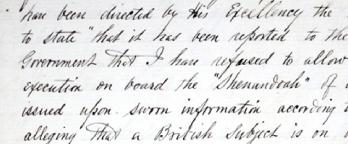 have been directed by His Excellency the
to state "that it has been reported to the
Government that I have refused to allow
execution on board the "Shenandoah" of
issued upon sworn information according
alleging that a British Subject is on